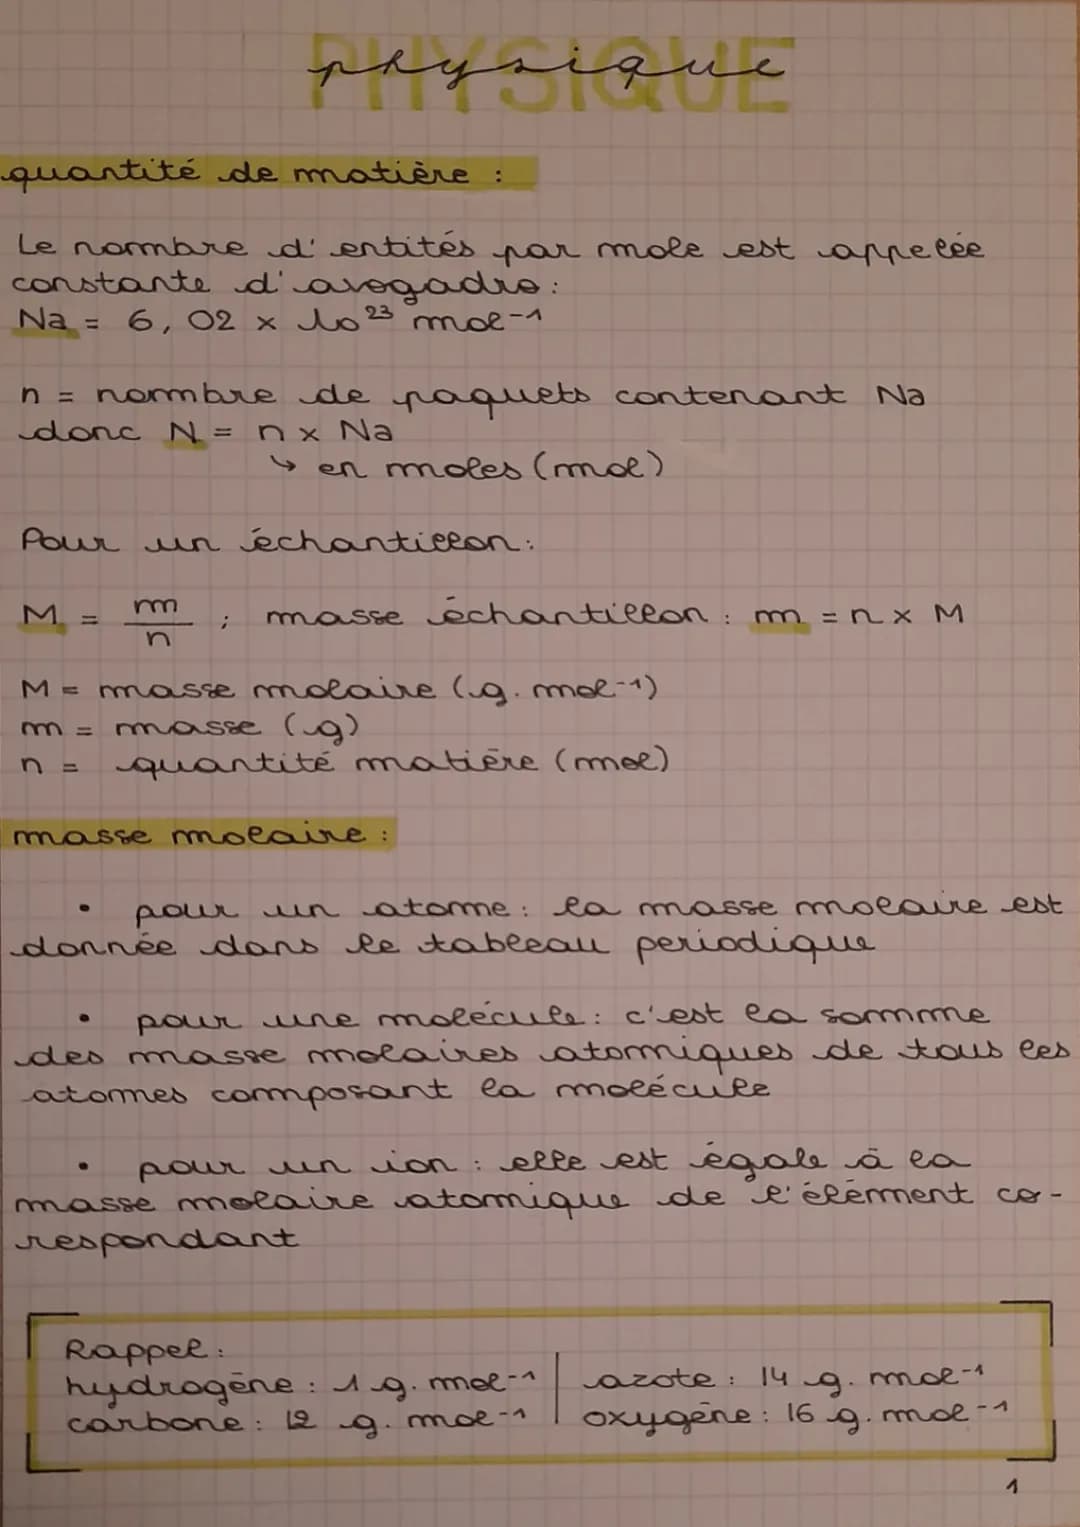 physique
PHYSIQUE
quantité de matière :
Le nombre d'entités par mole est appelée
constante d'avogadro :
Na = 6,02 x 10²³ mol⁻¹
n = nombre de paquets contenant Na
donc N = n x Na
↳ en moles (mol)
Pour un échantillon :
M = m/n ; masse échantillon : m = n x M
M = masse molaire (g. mol⁻¹)
m = masse (g)
n = quantité matière (mol)
masse molaire :
• pour un atome : la masse molaire est
donnée dans le tableau periodique
• pour une molécule : c'est la somme
des masse molaires atomiques de tous les
atomes composant la molécule
• pour un ion : elle est égale à la
masse molaire atomique de l'élément co-
respondant
Rappel :
hydrogène : 1 g. mol⁻¹ | azote : 14 g. mol⁻¹
carbone : 12 g. mol⁻¹ | oxygène : 16 g. mol⁻¹
1